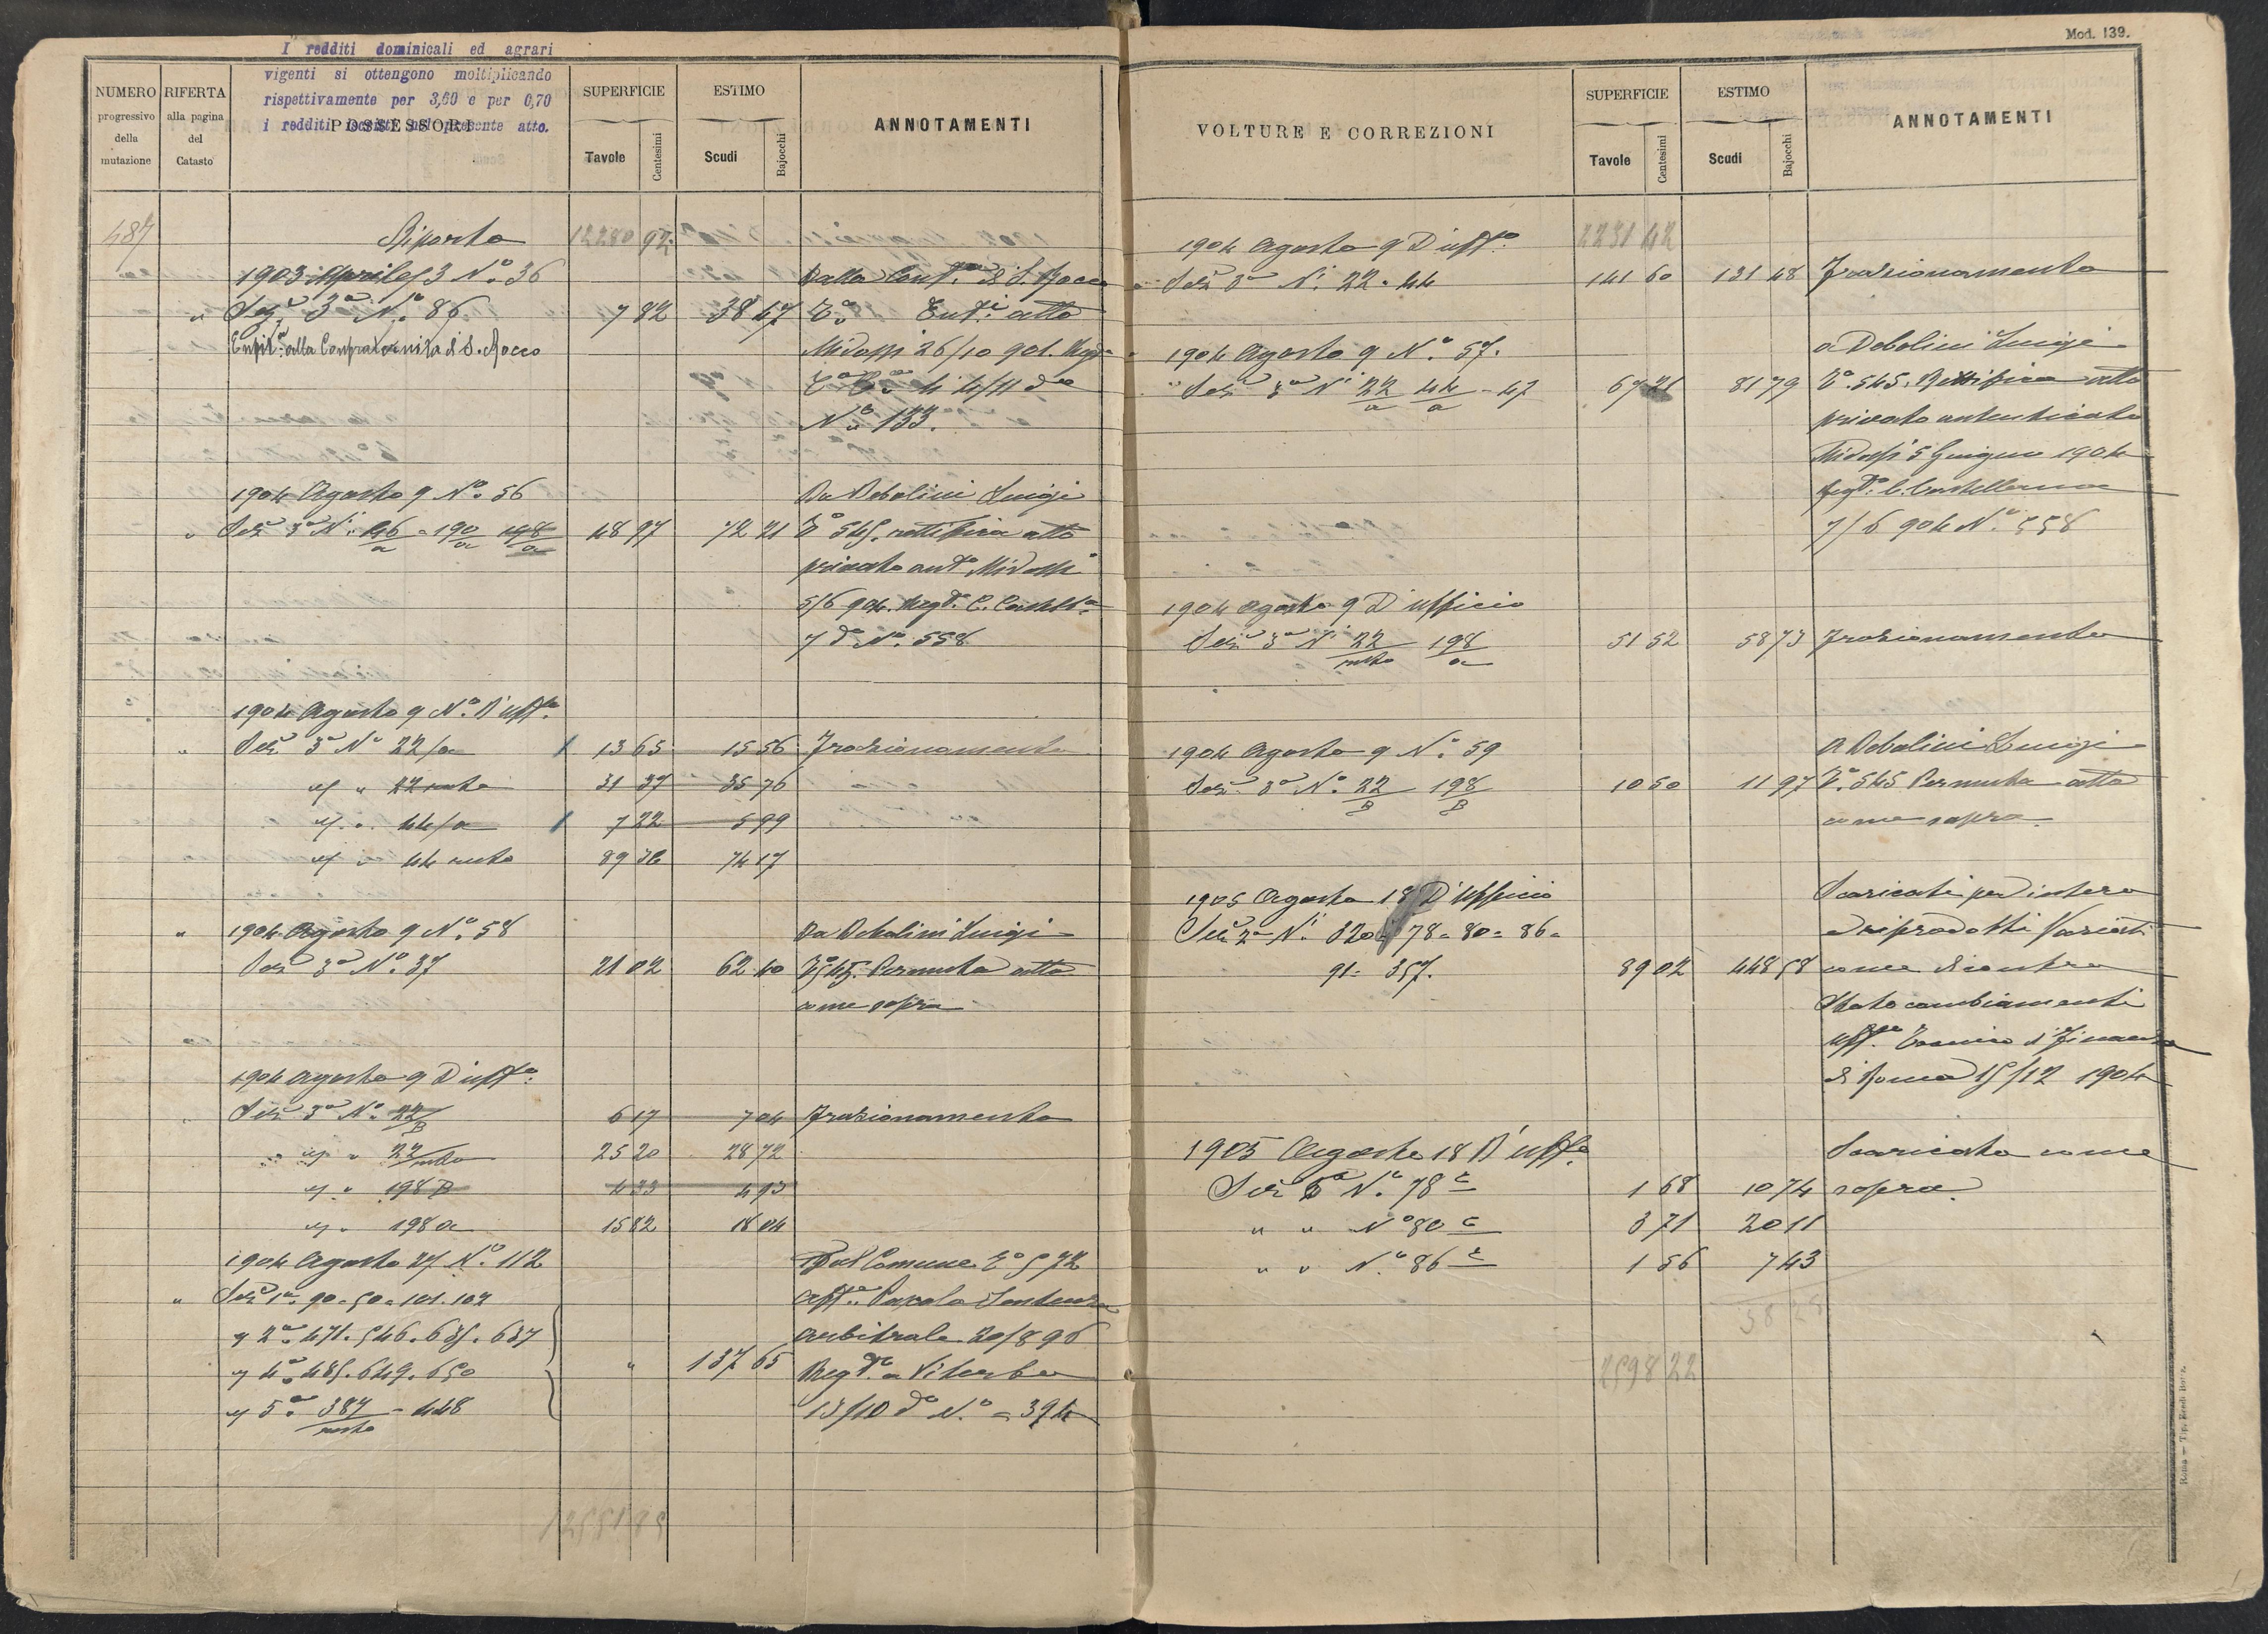 I redditi dominicali ed agrari
vigenti si ottengono moltiplicando
rispettivamente per 3,60 e per 0,70
i redditi iscritti nel presente atto.
NUMERO progressivo della mutazione
RIFERTA alla pagina del Catasto
POSSESSORI
SUPERFICIE
Tavole Centesimi
ESTIMO
Scudi Bajocchi
ANNOTAMENTI
487 Riporto 12280 92
1903 Aprile 3 N.o 36 Dalla Conf.a di S. Rocco
" Sez.e 3a N.o 86 7 82 38 47 Enf.i atto
Enfit.a alla Confraternita di S. Rocco Midossi 26/10 901.
4/11 do
N.o 133.
1904 Agosto 9 N.o 56 Da Debolini Luigi
" Sez 3a Ni 146/a - 190/a 148/a 48 97 72 21 To 545. rettifica atto
privato aut.o Midossi
5/6 904. Regto. C. Castell.a
7 do No. 558
1904 Agosto 9 No. D'uff.o
" Sez. 3a No 22/a 13 65 15 56 Frazionamento
" " 22 resto 31 37 35 76
" " 44/a 7 22 5 99
" " 44 resto 89 36 74 17
" 1904 Agosto 9 No. 58 Da Debolini Luigi
Sez 3a No. 37 21 02 62 40 To 545. Permuta atto
come sopra
1904 Agosto 9 D'uff.o
Sez 3a No. 22/B 6 17 7 04 Frazionamento
" " 22/resto 25 20 28 72
" " 198 B 4 33 4 93
" " 198 a 15 82 18 04
1904 Agosto 27 No. 112 Dal Comune To 572
" Sez 1a. 90 - 50 - 101. 102 Sentenza
" 2a. 471. 546. 635. 637 arbitrale 20/8 96
" 4a. 485. 649. 650 " 137 65 Reg.to a Viterbo
" 5a. 387/resto - 448 13/10 do N.o = 394
12551 85
Mod. 139.
VOLTURE E CORREZIONI
SUPERFICIE
Tavole Centesimi
ESTIMO
Scudi Bajocchi
ANNOTAMENTI
1904 Agosto 9 D'uff.o 2231 42
Sez 3a Ni 22 - 44 141 60 131 48 Frazionamento
1904 Agosto 9 N.o 57. a Debolini Luigi
" Sez 3a Ni 22/a 44/a - 47 67 21 81 79 To. 545. Rettifica atto
privato autenticato
Midossi 5 Giugno 1904
Regto. C. Castellana
7/6 904 No. 558
1904 Agosto 9 D'ufficio
Sez 3a Ni 22/resto 198/a 51 52 58 73 Frazionamento
1904 Agosto 9 No. 59 A Debolini Luigi
Sez. 3a No. 22/B 198/B 10 50 11 97 To. 545 Permuta atto
come sopra
1905 Agosto 18 D'Ufficio Scaricati per intero
Sez 2a Ni. 78 - 80 - 86 - e riprodotti variati
91 - 357. 89 02 448 58 come dicontro
Stato cambiamenti
Uff.o Tecnico di Finanza
di Roma 15/12 1904
1905 Agosto 18 D'uff.o Scaricato come
Sez No. 78 c 1 68 10 74 sopra
" " No 80 c 3 71 20 11
" " No. 86 c 1 56 7 43
38 28
2598 22
Roma — Tip.